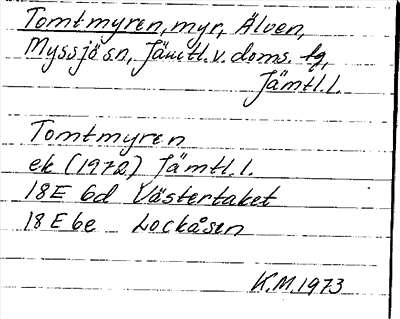 Tomtmyren, myr, Älven,
Myssjö sn, Jämtl. v. doms. tg,
Jämtl. l.
Tomtmyren
ek (1972) Jämtl. l.
18E 6d Västertaket
18E 6e Lockåsen
K.M. 1973